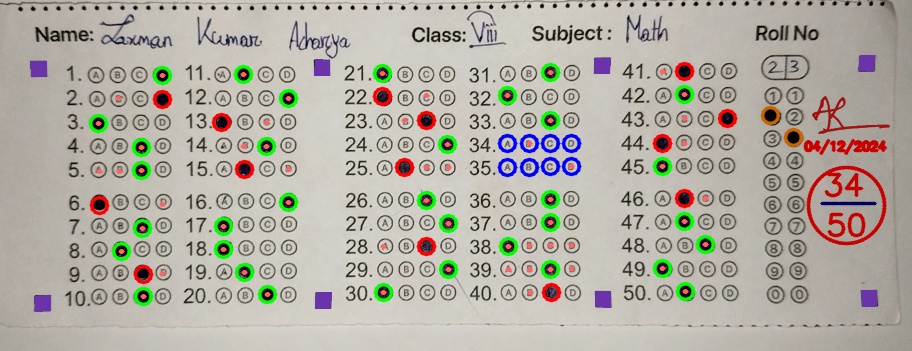 Name: Laxman Kumar Acharya Class: Viii Subject: Math Roll No
23
1. A B C
2. A B C
3. B C D
4. A B D
5. A B D
6. B C D
7. A B D
8. A C D
9. A B D
10. A B D
11. A C D
12. A B C
13. B C D
14. A B D
15. A C D
16. A B C
17. B C D
18. B C D
19. A C D
20. A B D
21. B C D
22. B C D
23. A B D
24. A B C
25. A C D
26. A B D
27. A B C
28. A B D
29. A B C
30. B C D
31. A B D
32. B C D
33. A B D
34. A B C D
35. A B C D
36. A B D
37. A B D
38. B C D
39. A B D
40. A B D
41. A C D
42. A C D
43. A B C
44. B C D
45. B C D
46. A C D
47. A C D
48. A B D
49. B C D
50. A C D
1 1
2
3
4 4
5 5
6 6
7 7
8 8
9 9
0 0
AR
04/12/2024
34
50